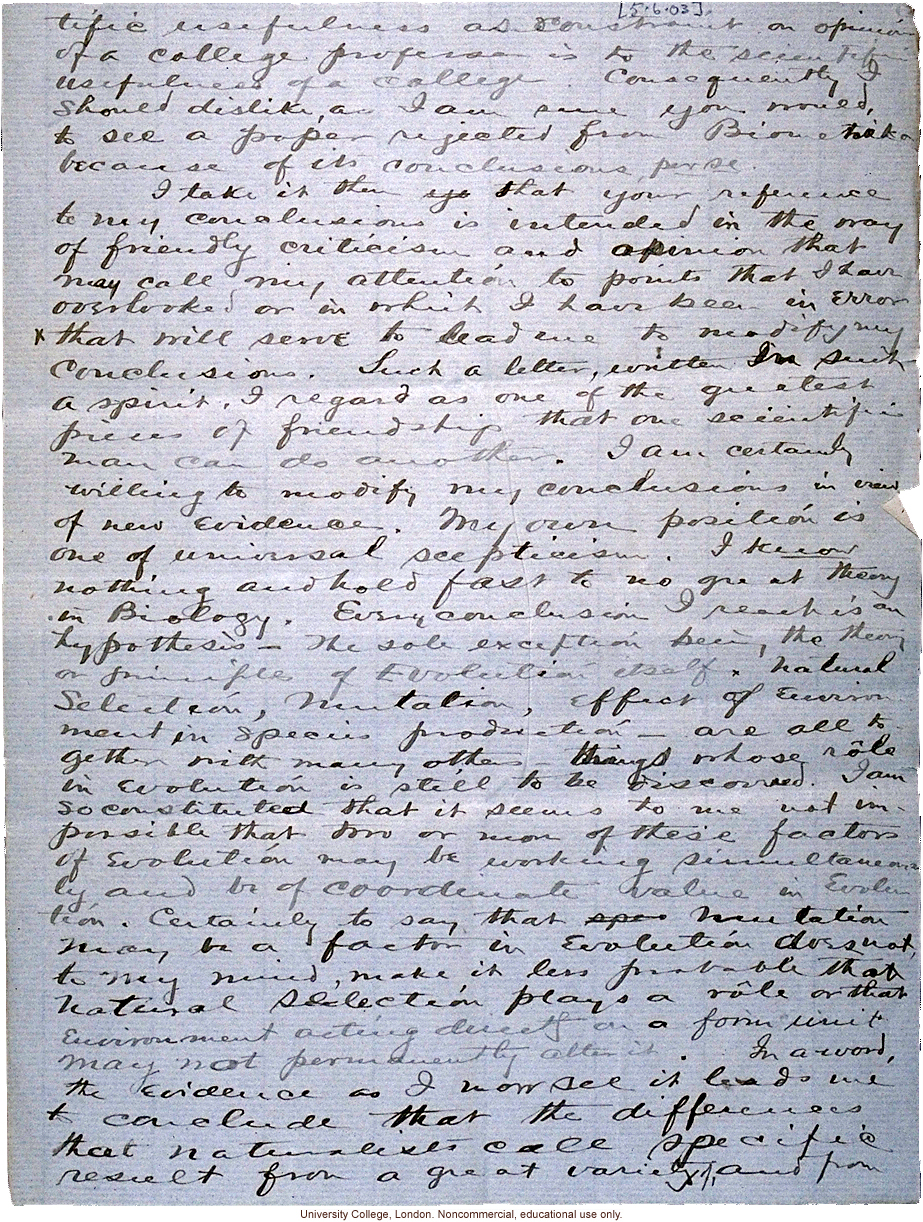 [5.6.03]
tific usefulness as constraint on opinion
of a college professor is to the scientific
usefulness of a college. Consequently I
should dislike, as I am sure you would,
to see a paper regected from Biometrika
because of its conclusions per se.
I take it then that your reference
to my conclusions is intended in the way
of friendly criticism and opinion that
may call my attention to points that I have
overlooked or in which I have been in error
x that will serve to lead me to modify my
conclusions. Such a letter, written in such
a spirit, I regard as one of the greatest
pieces of friendship that one scientific
man can do another. I am certainly
willing to modify my conclusions in view
of new evidence. My own position is
one of universal scepticism. I know
nothing and hold fast to no great theory
in Biology. Every conclusion I reach is an
hypothesis – The sole exception being the theory
or principle of Evolution itself. Natural
Selection, Mutation, Effect of Environ
ment in Species production – are all to
gether with many others – things whose rôle
in Evolution is still to be discovered. I am
so constituted that it seems to me not im-
possible that two or more of these factors
of Evolution may be working simultaneous
ly and be of coordinate value in Evolu
tion. Certainly to say that spec Mutation
may be a factor in Evolution does not,
to my mind, make it less probable that
Natural Selection plays a rôle or that
Environment acting directly on a form unit
may not permanently alter it. In a word,
the evidence as I now see it leads me
to conclude that the differences
that naturalists call specific
result from a great variety, and from
University College, London. Noncommercial, educational use only.